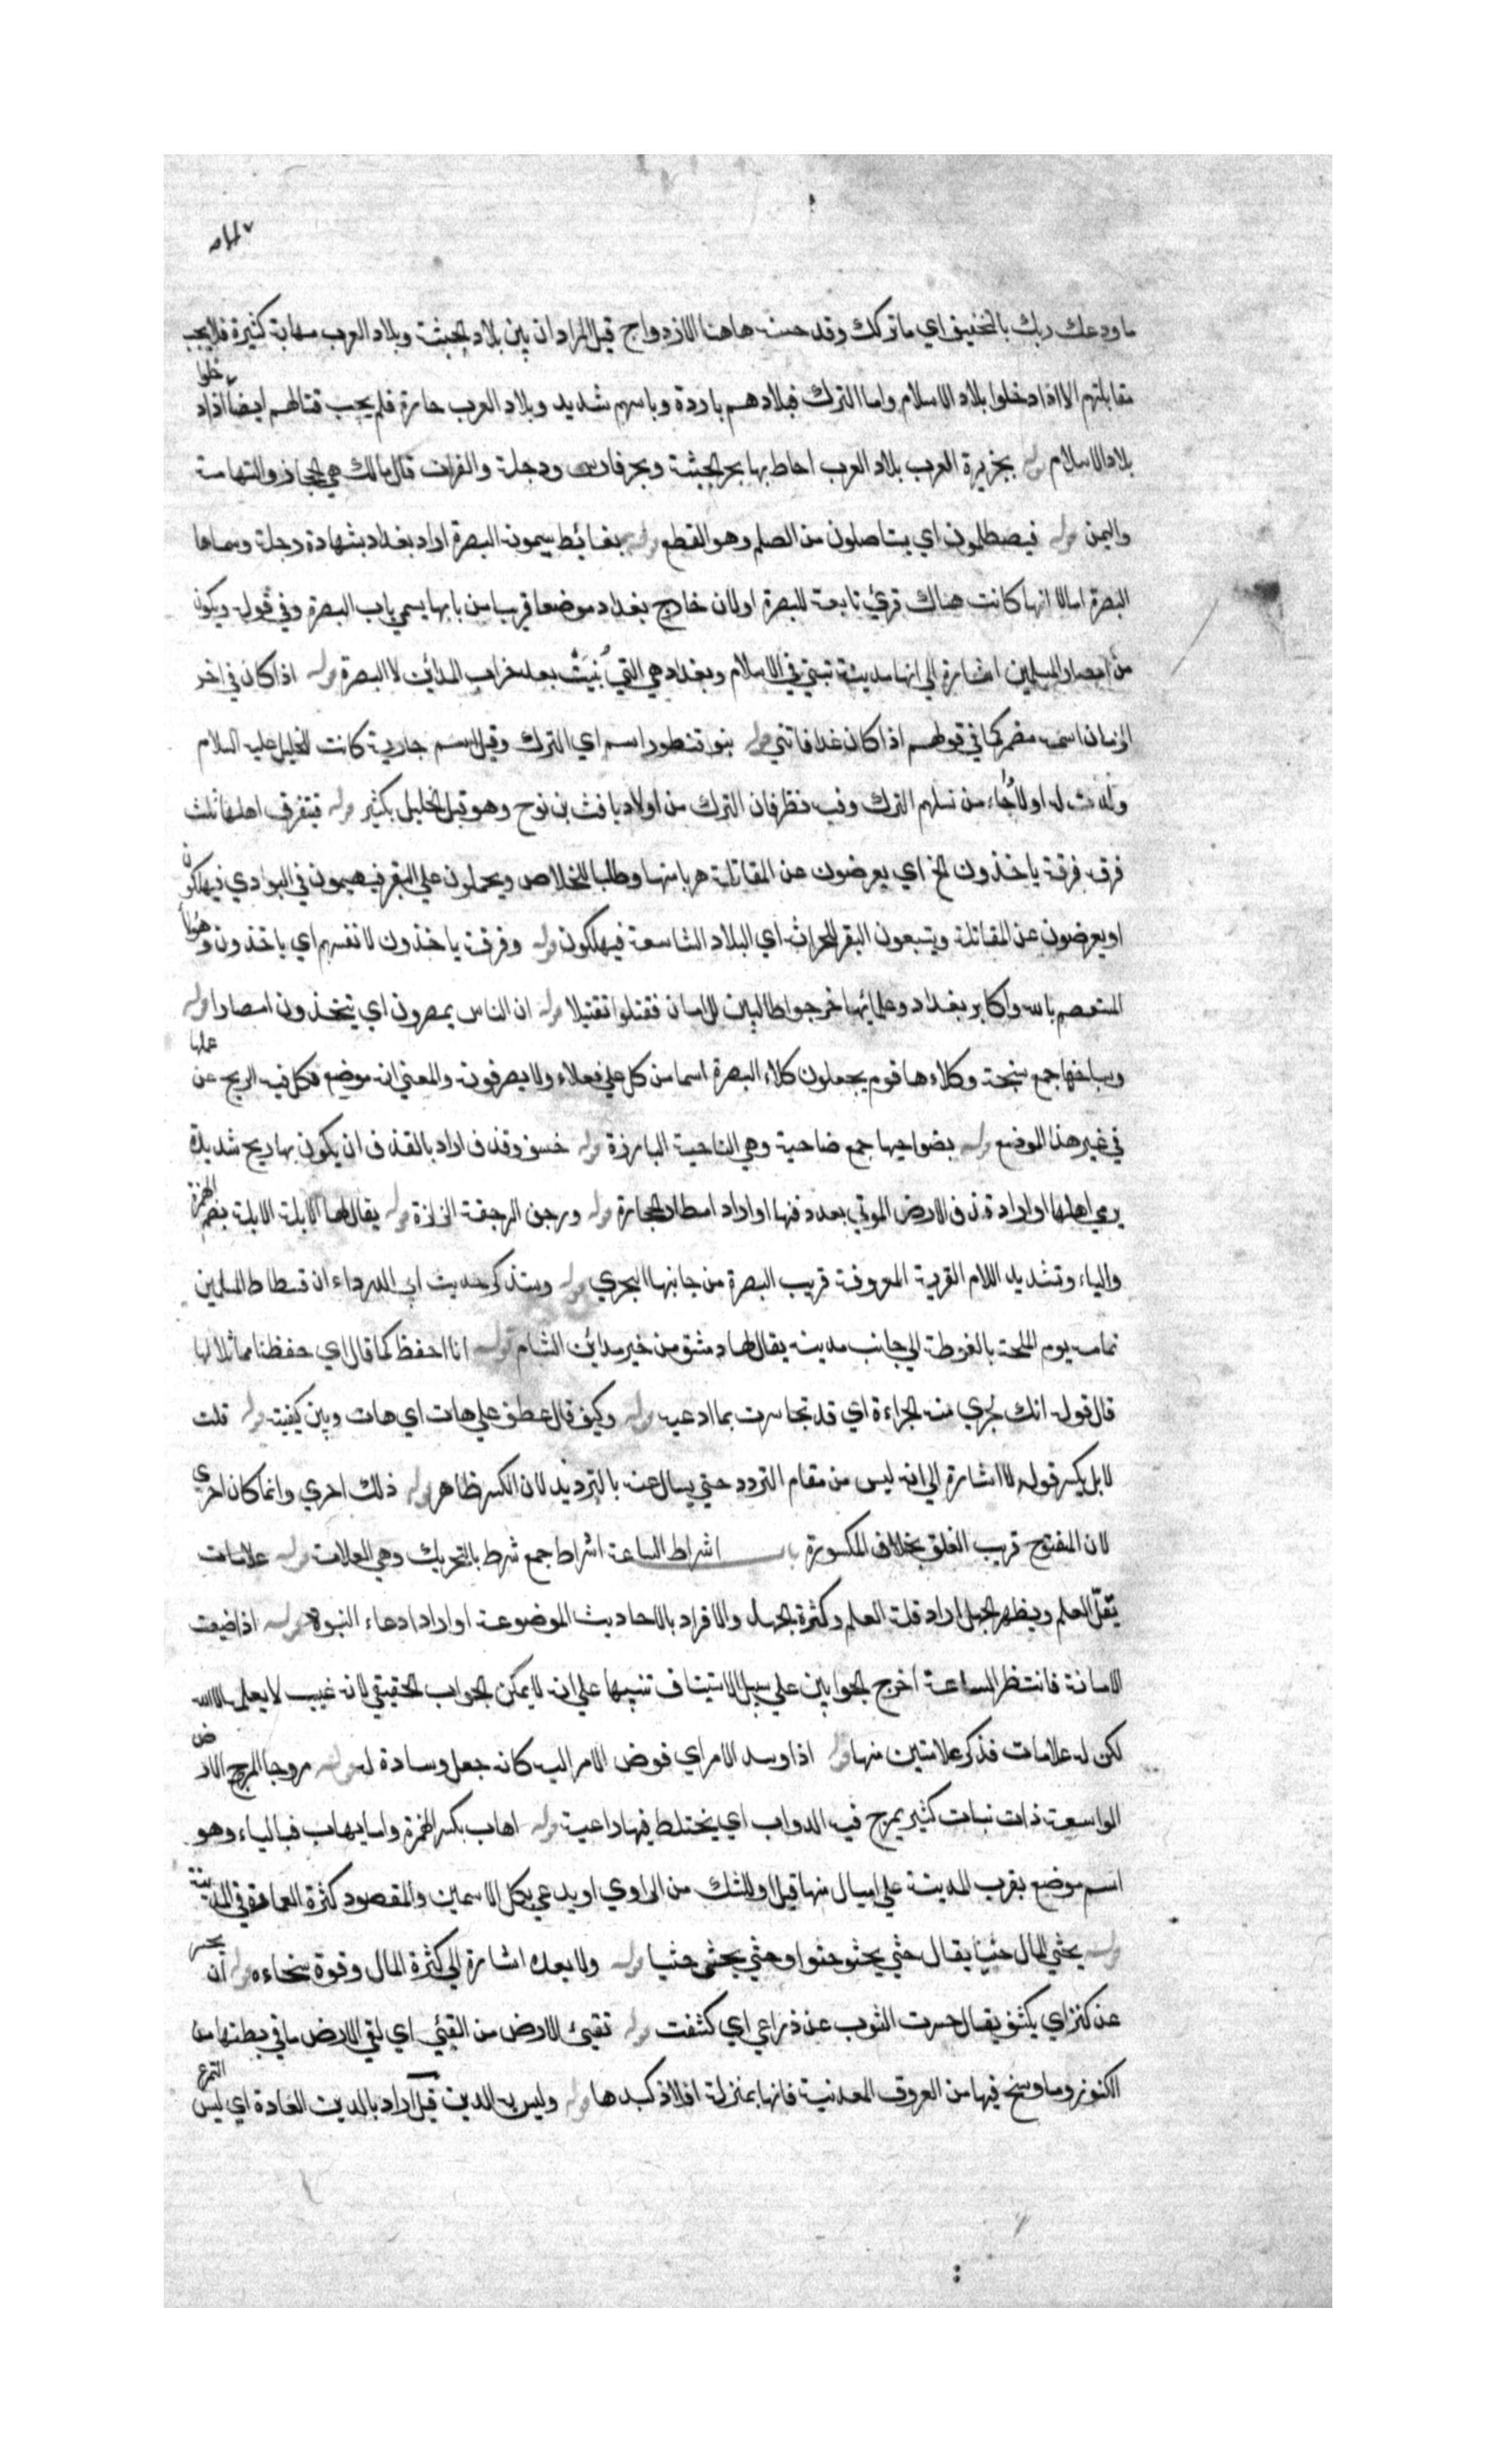 ما ودعك ربك بالتخفيف اي ما تركك وقد حسنه هاهنا الازدواج قيل المراد ان بين بلاد الحبشة وبلاد العرب مهامة كثيرة فلا يجب
مقابلتهم الا اذا دخلوا بلاد الاسلام واما الترك فبلادهم باردة وباسهم شديد وبلاد العرب حارة فلم يجب قتالهم ايضا اذا دخلوا
بلاد الاسلام قوله بجزيرة العرب بلاد العرب احاط بها بحر الحبشة وبحر فارس ودجلة والفرات قال مالك هي الحجاز والتهامة
واليمن قوله فيصطلمون اي يستاصلون من الصلم وهو القطع قوله بغائط يسمونه البصرة اراد بغداد بشهادة دجلة وسماها
البصرة اما لانها كانت هناك قرئ تابعة للبصرة او لان خارج بغداد موضعا قريبا من بابها يسمي باب البصرة وفي قوله ويكون
من امصار المسلمين اشارة الي انها مدينة تبتني في الاسلام وبغداد هي التي بُنِيَتْ بعد خراب المدائن لا البصرة قوله اذا كان في اخر
الزمان اسمه مضمر كما في قولهم اذا كان غدا فاتني قوله بنو قنطورا اسم ابي الترك وقيل اسم جارية كانت للخليل عليه السلام
ولدت له اولادا جاء من نسلهم الترك وفيه نظر فان الترك من اولاد يافث بن نوح وهو قبل الخليل بكثير قوله فيتفرق اهلها ثلث
فرق فرقة ياخذون الخ اي يعرضون عن المقاتلة هربا منها وطلبا للخلاص ويحملون علي البقر فيهيمون في البوادي فيهلكون
او يعرضون عن المقاتلة ويتبعون البقر للحراثة اي البلاد الشاسعة فيهلكون قوله وفرقة ياخذون لانفسهم اي ياخذون وهؤلاء
المستعصم بالله واكابر بغداد وعلمائها خرجوا طالبين للامان فقتلوا تقتيلا قوله ان الناس يمصرون اي يتخذون امصارا قوله
وسباخها جمع سبخة وكلاءها قوم يجعلون كلاء البصرة اسما من كل علي فعلاء ولا يصرفونه والمعني انه موضع تكل فيه الريح عن عملها
في غير هذا الموضع قوله بضواحيها جمع ضاحية وهي الناحية البارزة قوله خسف وقذف اراد بالقذف ان يكون بها ريح شديدة
يرمي اهلها او اراد قذف الارض الموتي بعد دفنها او اراد امطار الحجارة قوله ورجف الرجفة الزلزلة قوله يقال لها الابلة الابلة بضم الهمزة
والباء وتشديد اللام القرية المعروفة قريب البصرة من جانبها البحري قوله وسنذكر حديث ابي الدرداء ان فسطاط المسلمين
تمامه يوم الملحمة بالغوطة الي جانب مدينة يقال لها دمشق من خير مدائن الشام قوله انا احفظ كما قال اي حفظنا مماثلا لها
قال قوله انك لجري من الجراءة اي قد تجاسرت بما ادعيه قوله وكيف قال عطف علي هات اي هات وبين كيفيته قوله قلت
لا بل يكسر قوله لا اشارة الي انه ليس من مقام التردد حتي يسال عنه بالترديد لان الكسر ظاهر قوله ذلك احري وانما كان احري
لان المفتوح قريب الغلق بخلاف المكسورة باب اشراط الساعة اشراط جمع شرط بالتحريك وهي العلامة قوله علامات
يقلّ العلم ويظهر الجهل اراد قلة العلم وكثرة الجهل والافراد بالاحاديث الموضوعة او اراد ادعاء النبوة قوله اذا ضيعت
الامانة فانتظر الساعة اخرج الجوابين علي سبيل الاستيناف تنبيها علي انه لا يمكن الجواب الحقيقي لانه غيب لا يعلمه الا الله
لكن له علامات فذكر علامتين منها قوله اذا وسد الامر اي فوض الامر اليه كانه جعل وسادة له قوله مروجا المرج الارض
الواسعة ذات نبات كثير يمرج فيه الدواب اي يختلط فيها راعية قوله اهاب بكسر الهمزة واما يهاب فبالياء وهو
اسم موضع بقرب المدينة علي اميال منها قيل او للشك من الراوي او يدعي بكل الاسمين والمقصود كثرة العمارة في المدينة
قوله يحثي المال حثيا يقال حثي يحثو حثوا وحثي يحثي حثيا قوله ولا يعده اشارة الي كثرة المال وقوة سخاءه قوله ان يحسر
عن كنز اي يكشف يقال حسرت الثوب عن ذراعي اي كشفت قوله تقيئ الارض من القيئ اي تلقي الارض ما في بطنها من
الكنوز وما رسخ فيها من العروق المعدنية فانها بمنزلة افلاذ كبدها قوله وليس به الدين قيل اراد بالدين العادة اي ليس التمرغ